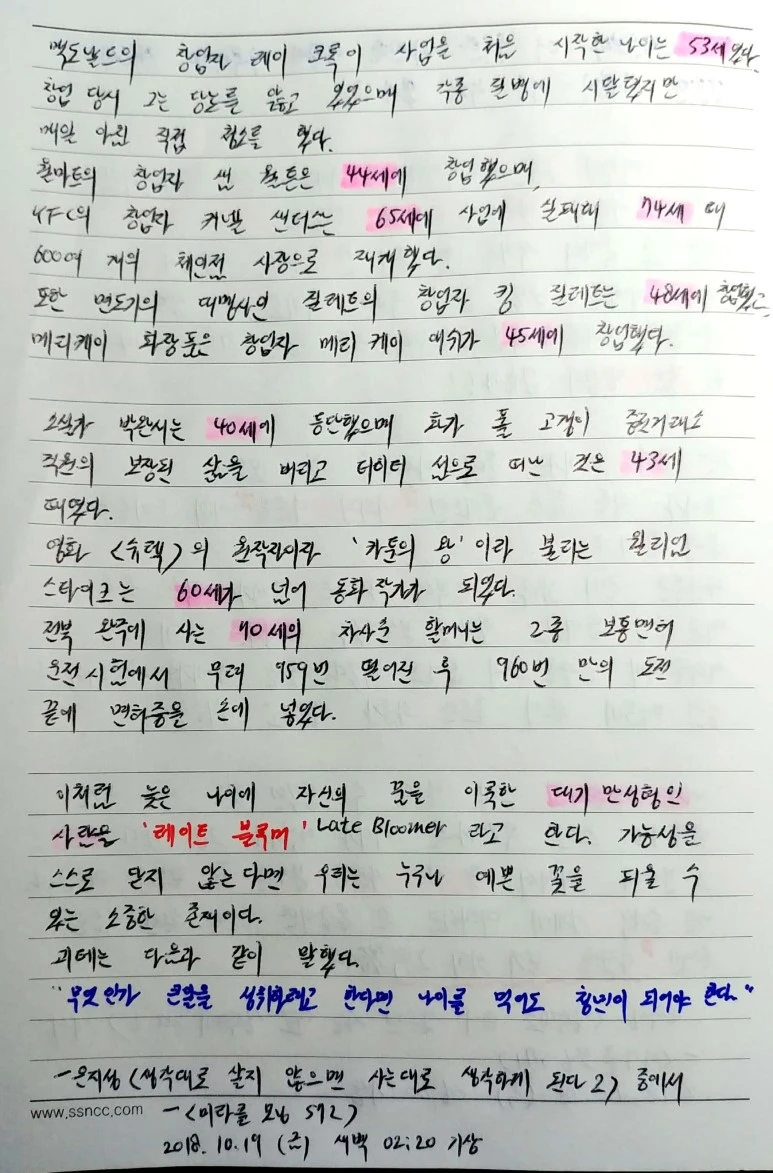 맥도날드의 창업자 레이 크록이 사업을 처음 시작한 나이는 53세였다.
창업 당시 그는 당뇨를 앓고 있었으며 각종 질병에 시달렸지만
매일 아침 직접 청소를 했다.
월마트의 창업자 샘 월튼은 44세에 창업했으며,
KFC의 창업자 커넬 샌더스는 65세에 사업에 실패해 74세 때
600여 개의 체인점 사장으로 재기했다.
또한 면도기의 대명사인 질레트의 창업자 킹 질레트는 48세에 창업했고,
메리케이 화장품은 창업자 메리 케이 애쉬가 45세에 창업했다.
소설가 박완서는 40세에 등단했으며 화가 폴 고갱이 증권거래소
직원의 보장된 삶을 버리고 타이티 섬으로 떠난 것은 43세
때였다.
영화 <슈렉>의 원작자이자 '카툰의 왕'이라 불리는 윌리엄
스타이크는 60세가 넘어 동화 작가가 되었다.
전북 완주에 사는 70세의 차사순 할머니는 2종 보통면허
운전시험에서 무려 959번 떨어진 후 960번 만의 도전
끝에 면허증을 손에 넣었다.
이처럼 늦은 나이에 자신의 꿈을 이룩한 대기만성형인
사람을 '레이트 블루머' Late Bloomer 라고 한다. 가능성을
스스로 닫지 않는다면 우리는 누구나 예쁜 꽃을 피울 수
있는 소중한 존재이다.
괴테는 다음과 같이 말했다.
"무엇인가 큰일을 성취하려고 한다면 나이를 먹어도 청년이 되어야 한다."
-은지성 <생각대로 살지 않으면 사는대로 생각하게 된다 2> 중에서
www.ssncc.com -<미라클 모닝 592>
2018. 10. 19 (금) 새벽 02:20 기상